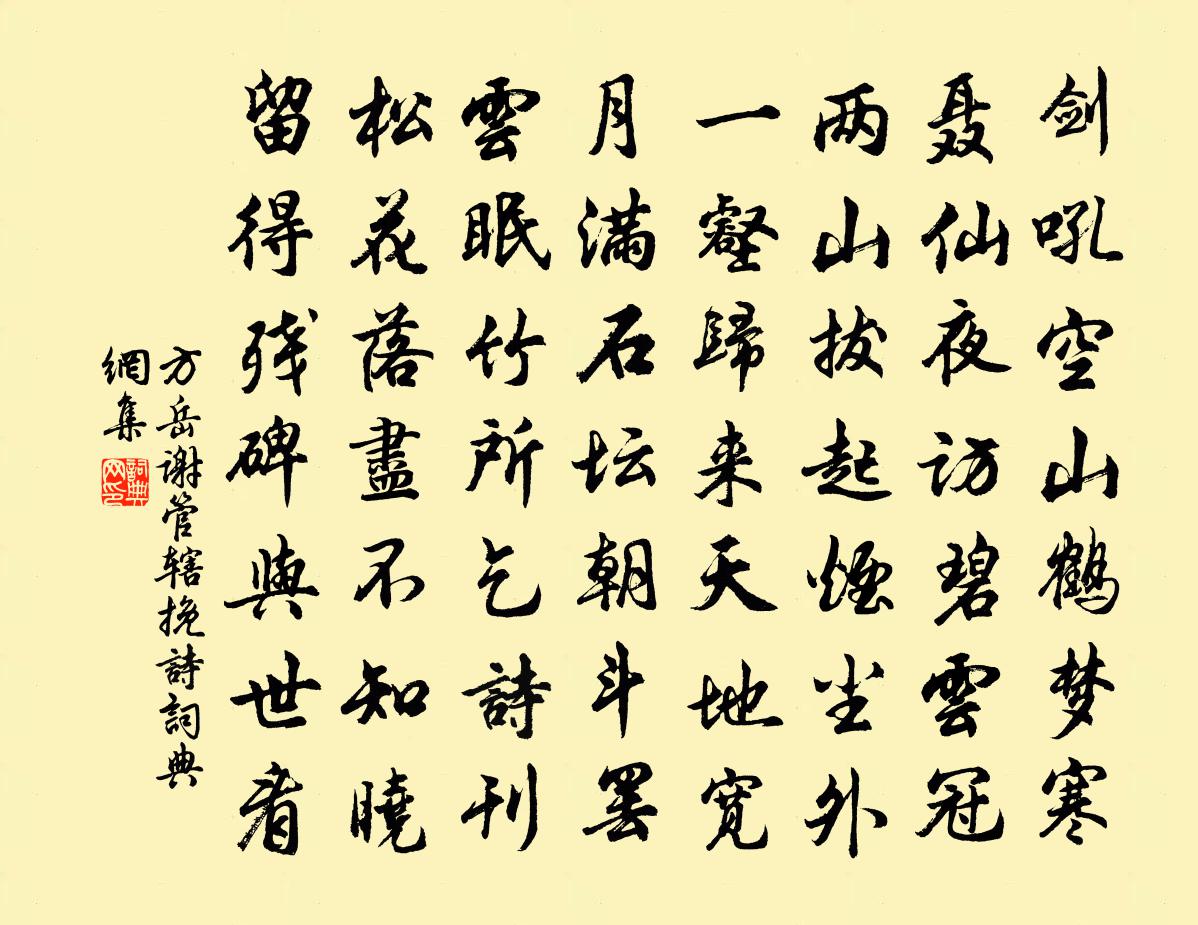 剑吼空山鹤梦寒
聂仙夜访碧雲冠
两山拔起煙尘外
一壑歸来天地宽
月满石坛朝斗罢
雲眠竹所乞詩刊
松花落盡不知曉
留得残碑與世看
方岳谢管辖挽詩詞典
網集
詞典网印